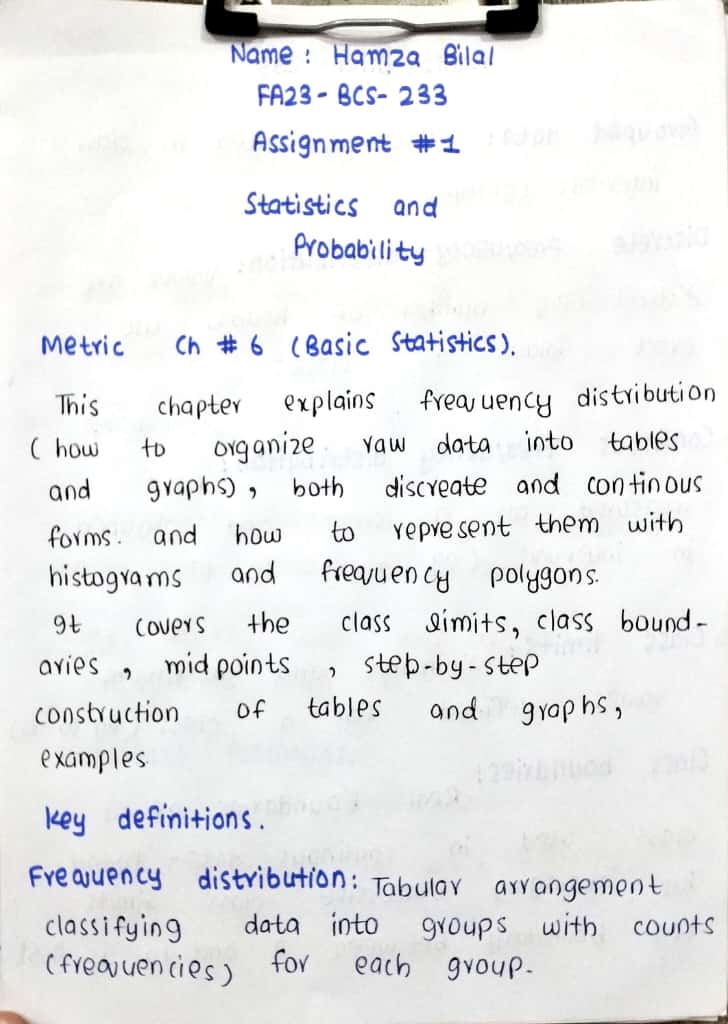 Name : Hamza Bilal
FA23 - BCS - 233
Assignment #1
Statistics and
Probability
Metric Ch # 6 (Basic Statistics).
This chapter explains frequency distribution
( how to organize raw data into tables
and graphs) , both discreate and continous
forms. and how to represent them with
histograms and frequency polygons.
It covers the class limits, class bound-
aries , midpoints , step-by-step
construction of tables and graphs,
examples
key definitions.
Frequency distribution: Tabular arrangement
classifying data into groups with counts
(frequencies) for each group.